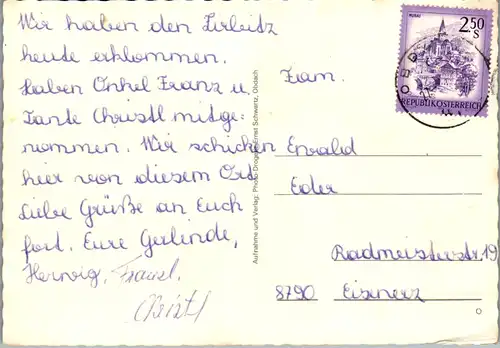 Wir haben den Zirbitz
heute erklommen.
Haben Onkel Franz u.
Tante Christl mitge-
nommen. Wir schicken
hier von diesem Ort
liebe Grüße an Euch
fort. Eure Gerlinde,
Herwig, Franzl.
Christl
Aufnahme und Verlag: Photo-Drogerie Ernst Schwarz, Obdach
MURAU
2.50
S
REPUBLIK ÖSTERREICH
OBD
Fam.
Ewald
Eder
Radmeisterstr. 19
8790 Eisenerz